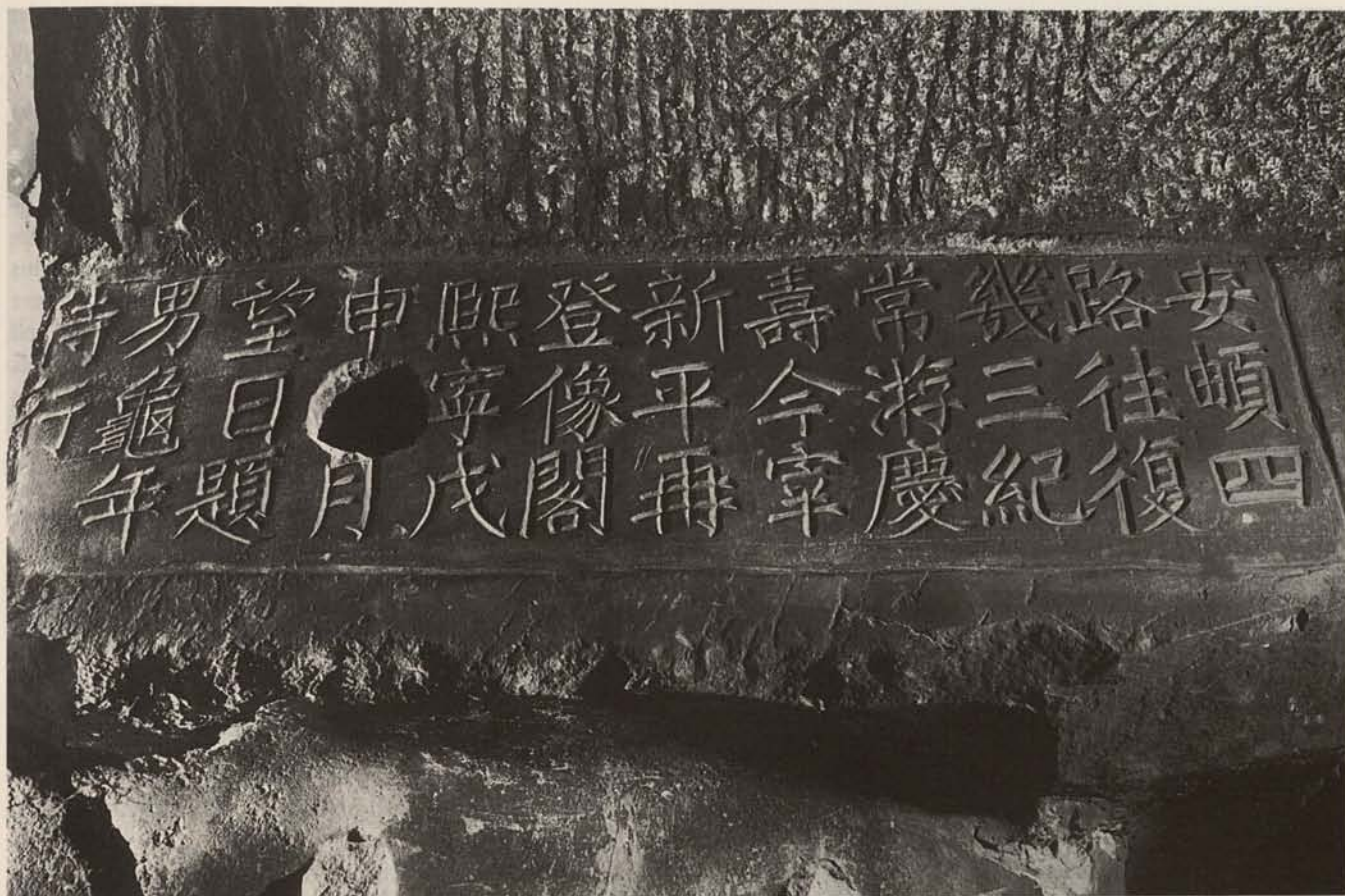 安頓四
路往復
幾三紀
常游慶
壽今宰
新平再
登像閣
熙寧戊
申月
望日題
男龜年
侍行